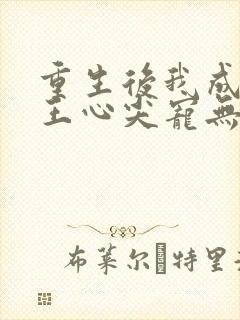 重生後我成
王心尖寵無
布莱尔 特里